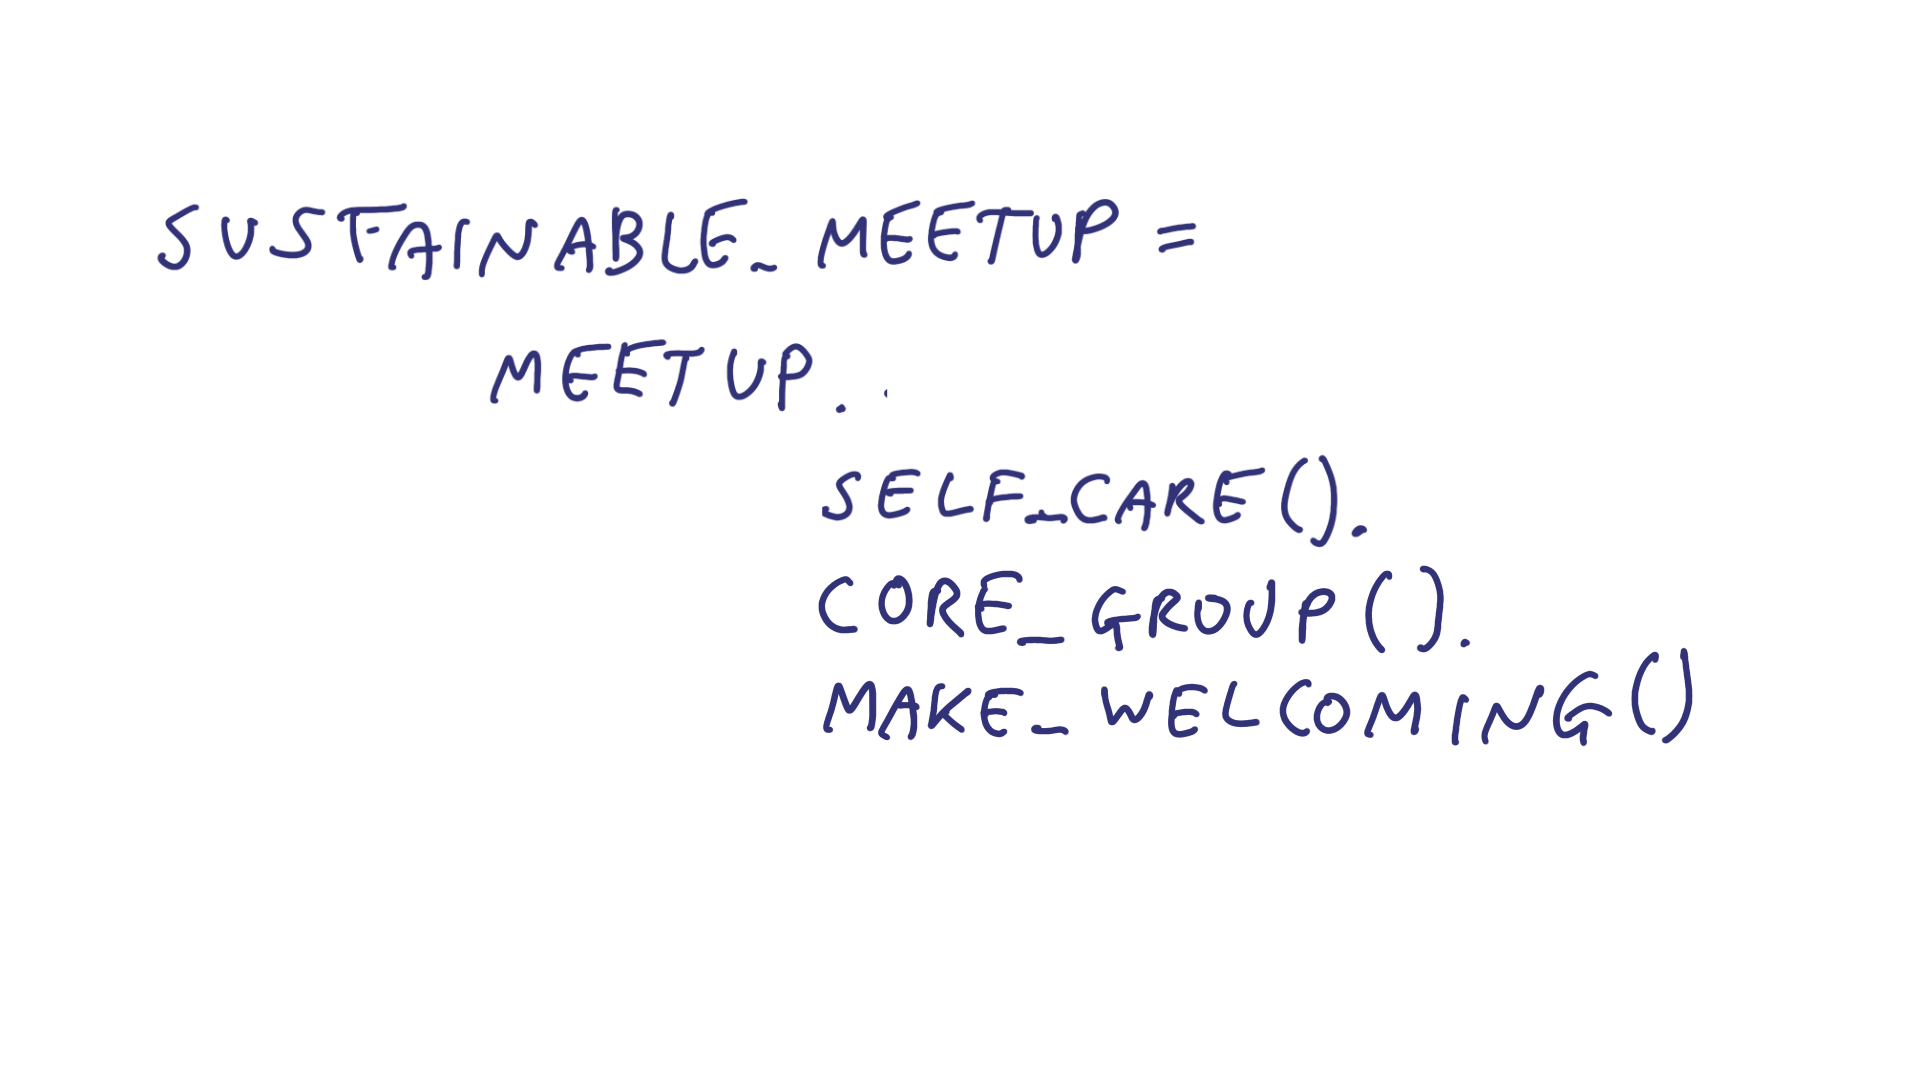 SUSTAINABLE_MEETUP =
MEETUP.
SELF_CARE().
CORE_GROUP().
MAKE_WELCOMING()